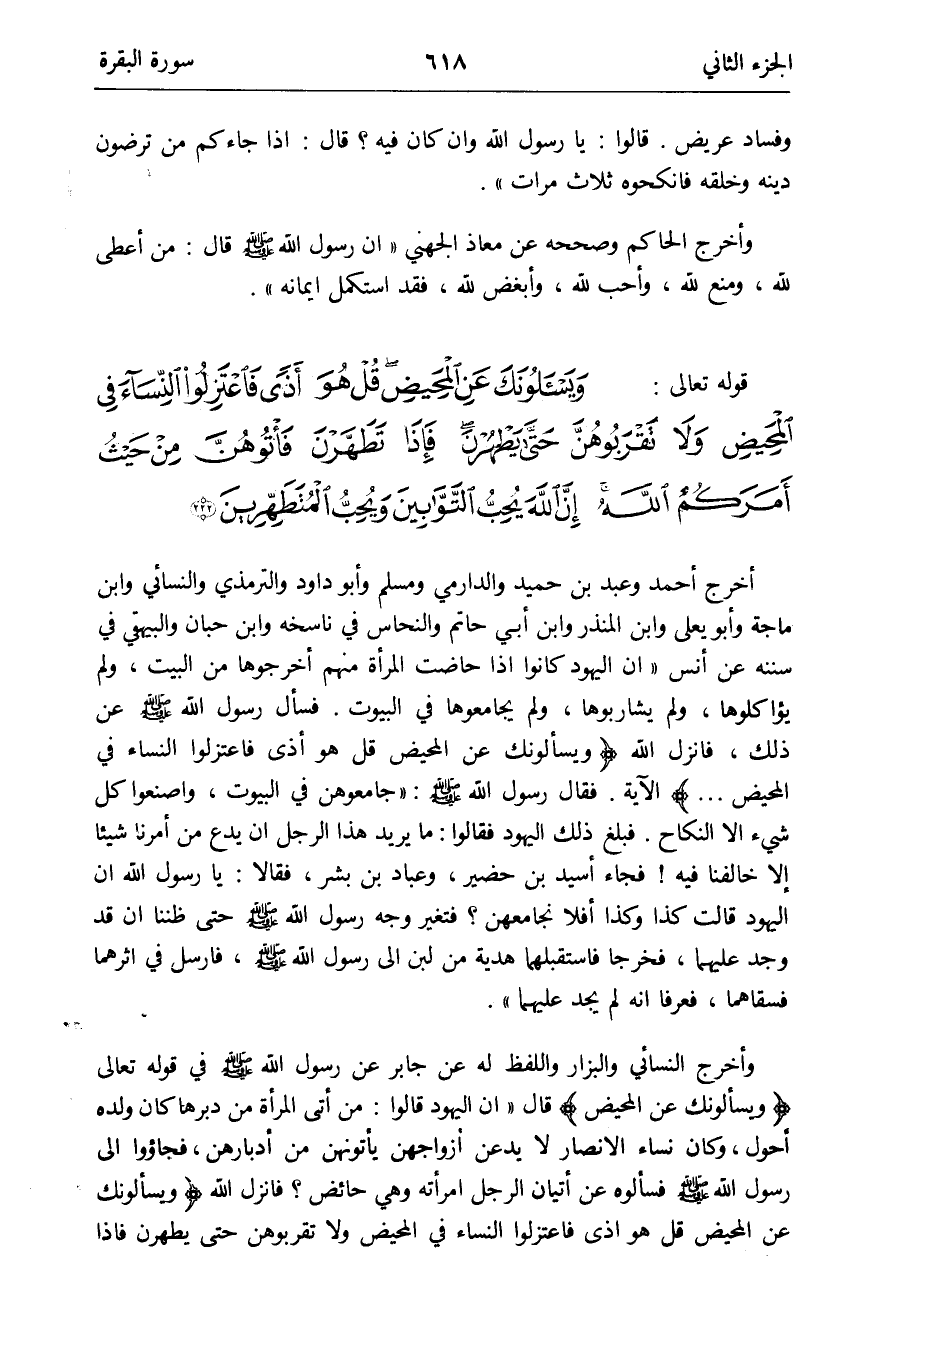 الجزء الثاني ٦١٨ سورة البقرة
وفساد عريض . قالوا : يا رسول الله وان كان فيه ؟ قال : اذا جاءكم من ترضون
دينه وخلقه فانكحوه ثلاث مرات » .
وأخرج الحاكم وصححه عن معاذ الجهني « ان رسول الله ﷺ قال : من أعطى
لله ، ومنع لله ، وأحب لله ، وأبغض لله ، فقد استكمل ايمانه » .
قوله تعالى : وَيَسْـَٔلُونَكَ عَنِ ٱلْمَحِيضِ ۖ قُلْ هُوَ أَذًى فَٱعْتَزِلُوا۟ ٱلنِّسَآءَ فِى
ٱلْمَحِيضِ وَلَا تَقْرَبُوهُنَّ حَتَّىٰ يَطْهُرْنَ ۖ فَإِذَا تَطَهَّرْنَ فَأْتُوهُنَّ مِنْ حَيْثُ
أَمَرَكُمُ ٱللَّهُ ۚ إِنَّ ٱللَّهَ يُحِبُّ ٱلتَّوَّٰبِينَ وَيُحِبُّ ٱلْمُتَطَهِّرِينَ ٢٢٢
أخرج أحمد وعبد بن حميد والدارمي ومسلم وأبو داود والترمذي والنسائي وابن
ماجة وأبو يعلى وابن المنذر وابن أبي حاتم والنحاس في ناسخه وابن حبان والبيهقي في
سننه عن أنس « ان اليهود كانوا اذا حاضت المرأة منهم أخرجوها من البيت ، ولم
يؤاكلوها ، ولم يشاربوها ، ولم يجامعوها في البيوت . فسأل رسول الله ﷺ عن
ذلك ، فانزل الله ﴿ ويسألونك عن المحيض قل هو أذى فاعتزلوا النساء في
المحيض ... ﴾ الآية . فقال رسول الله ﷺ : «جامعوهن في البيوت ، واصنعوا كل
شيء الا النكاح . فبلغ ذلك اليهود فقالوا : ما يريد هذا الرجل ان يدع من أمرنا شيئا
إلا خالفنا فيه ! فجاء أسيد بن حضير ، وعباد بن بشر ، فقالا : يا رسول الله ان
اليهود قالت كذا وكذا أفلا نجامعهن ؟ فتغير وجه رسول الله ﷺ حتى ظننا ان قد
وجد عليهما ، فخرجا فاستقبلهما هدية من لبن الى رسول الله ﷺ ، فارسل في اثرهما
فسقاهما ، فعرفا انه لم يجد عليهما » .
وأخرج النسائي والبزار واللفظ له عن جابر عن رسول الله ﷺ في قوله تعالى
﴿ ويسألونك عن المحيض ﴾ قال « ان اليهود قالوا : من أتى المرأة من دبرها كان ولده
أحول ، وكان نساء الانصار لا يدعن أزواجهن يأتونهن من أدبارهن ، فجاؤوا الى
رسول الله ﷺ فسألوه عن أتيان الرجل امرأته وهي حائض ؟ فانزل الله ﴿ ويسألونك
عن المحيض قل هو اذى فاعتزلوا النساء في المحيض ولا تقربوهن حتى يطهرن فاذا